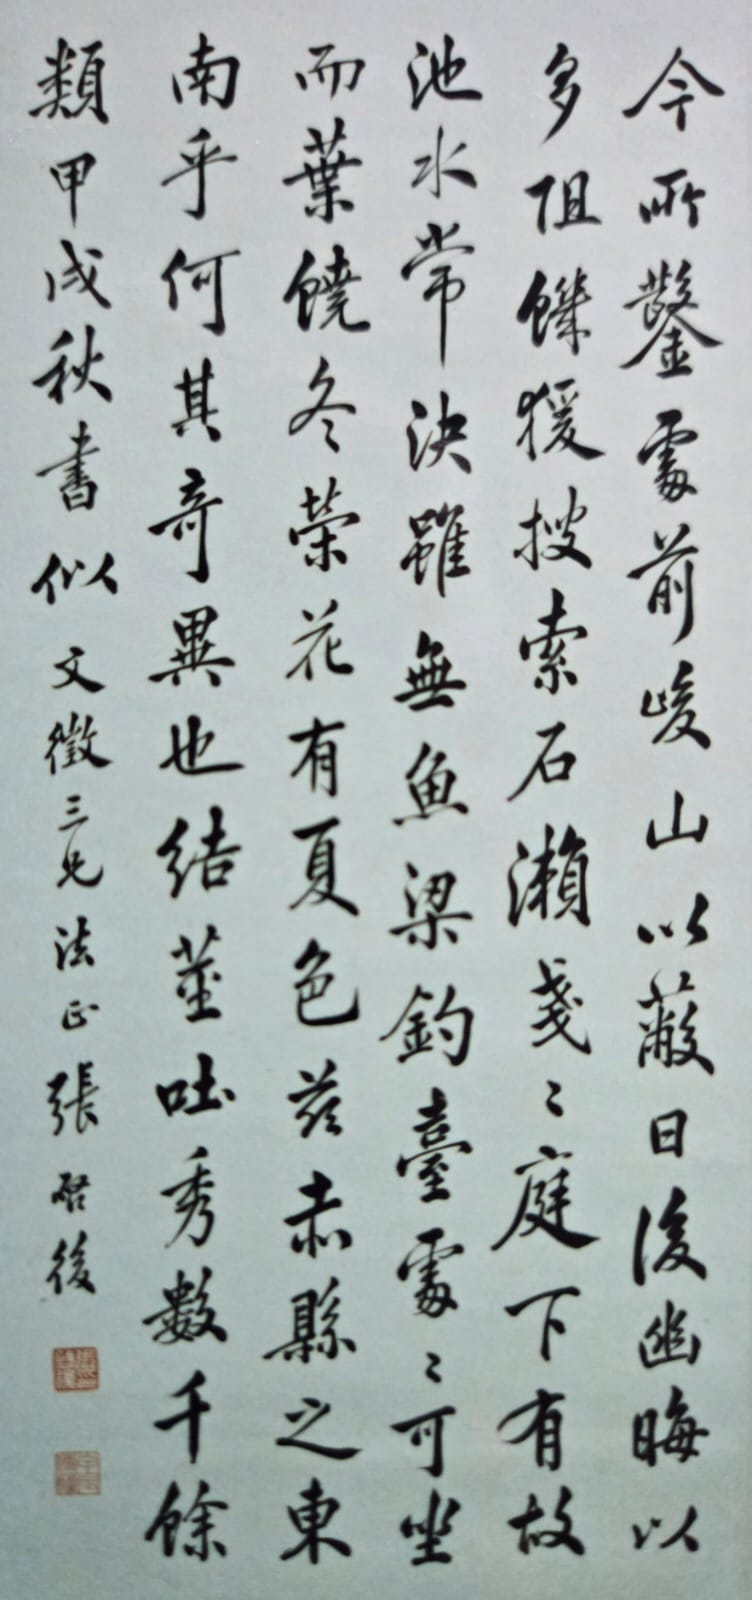 今所鑿處前峻山以蔽日後幽晦以
多阻饑猨搜索石瀨戔〻庭下有故
池水常決雖無魚梁釣臺處〻可坐
而葉饒冬榮花有夏色茲赤縣之東
南乎何其奇異也結莖吐秀數千餘
類甲戌秋書似文徵三兄法正張啓後